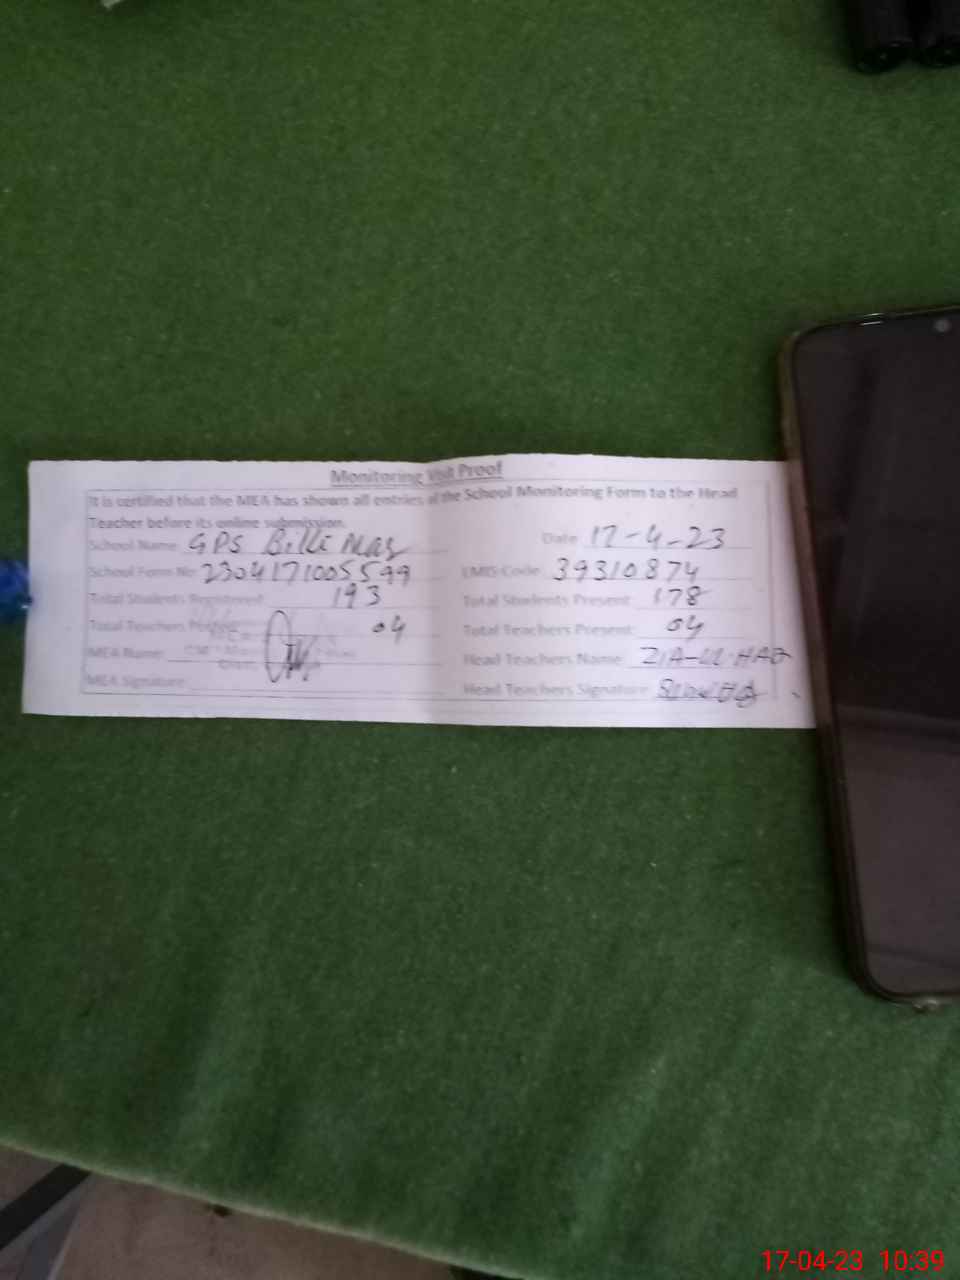 Monitoring Visit Proof
It is certified that the MEA has shown all entries of the School Monitoring Form to the Head
Teacher before its online submission.
School Name GPS Date 17-4-23
School Form No 2304171005599 EMIS Code 39310874
Total Students Registered 193 Total Students Present 178
Total Teachers Posted 04 Total Teachers Present 04
MEA Name: Head Teachers Name: ZIA-UL-HAQ
MEA Signature: Head Teachers Signature
17-04-23 10:39